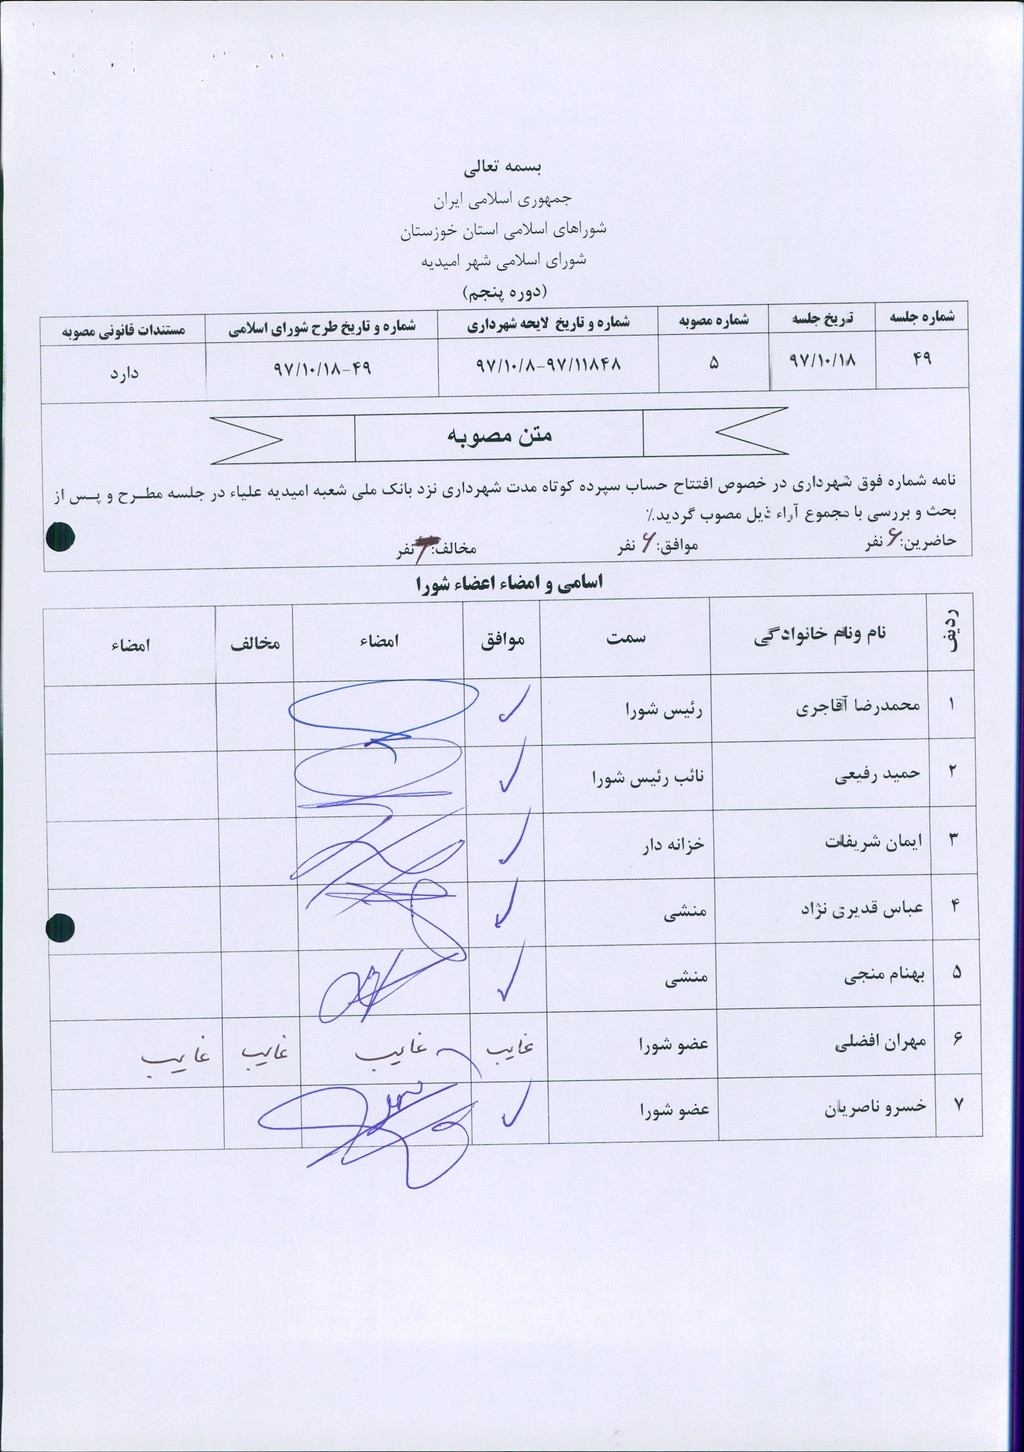 بسمه تعالی
جمهوری اسلامی ایران
شوراهای اسلامی استان خوزستان
شورای اسلامی شهر امیدیه
(دوره پنجم)
شماره جلسه تاریخ جلسه شماره مصوبه شماره و تاریخ لایحه شهرداری شماره و تاریخ طرح شورای اسلامی مستندات قانونی مصوبه
۴۹ ۹۷/۱۰/۱۸ ۵ ۹۷/۱۰/۸-۹۷/۱۱۸۴۸ ۹۷/۱۰/۱۸-۴۹ دارد
متن مصوبه
نامه شماره فوق شهرداری در خصوص افتتاح حساب سپرده کوتاه مدت شهرداری نزد بانک ملی شعبه امیدیه علیاء در جلسه مطرح و پس از
بحث و بررسی با مجموع آراء ذیل مصوب گردید.٪
حاضرین: ۶ نفر موافق: ۶ نفر مخالف: نفر
اسامی و امضاء اعضاء شورا
ردیف نام ونام خانوادگی سمت موافق امضاء مخالف امضاء
۱ محمدرضا آقاجری رئیس شورا
۲ حمید رفیعی نائب رئیس شورا
۳ ایمان شریفات خزانه دار
۴ عباس قدیری نژاد منشی
۵ بهنام منجی منشی
۶ مهران افضلی عضو شورا غایب غایب غایب غایب
۷ خسرو ناصریان عضو شورا